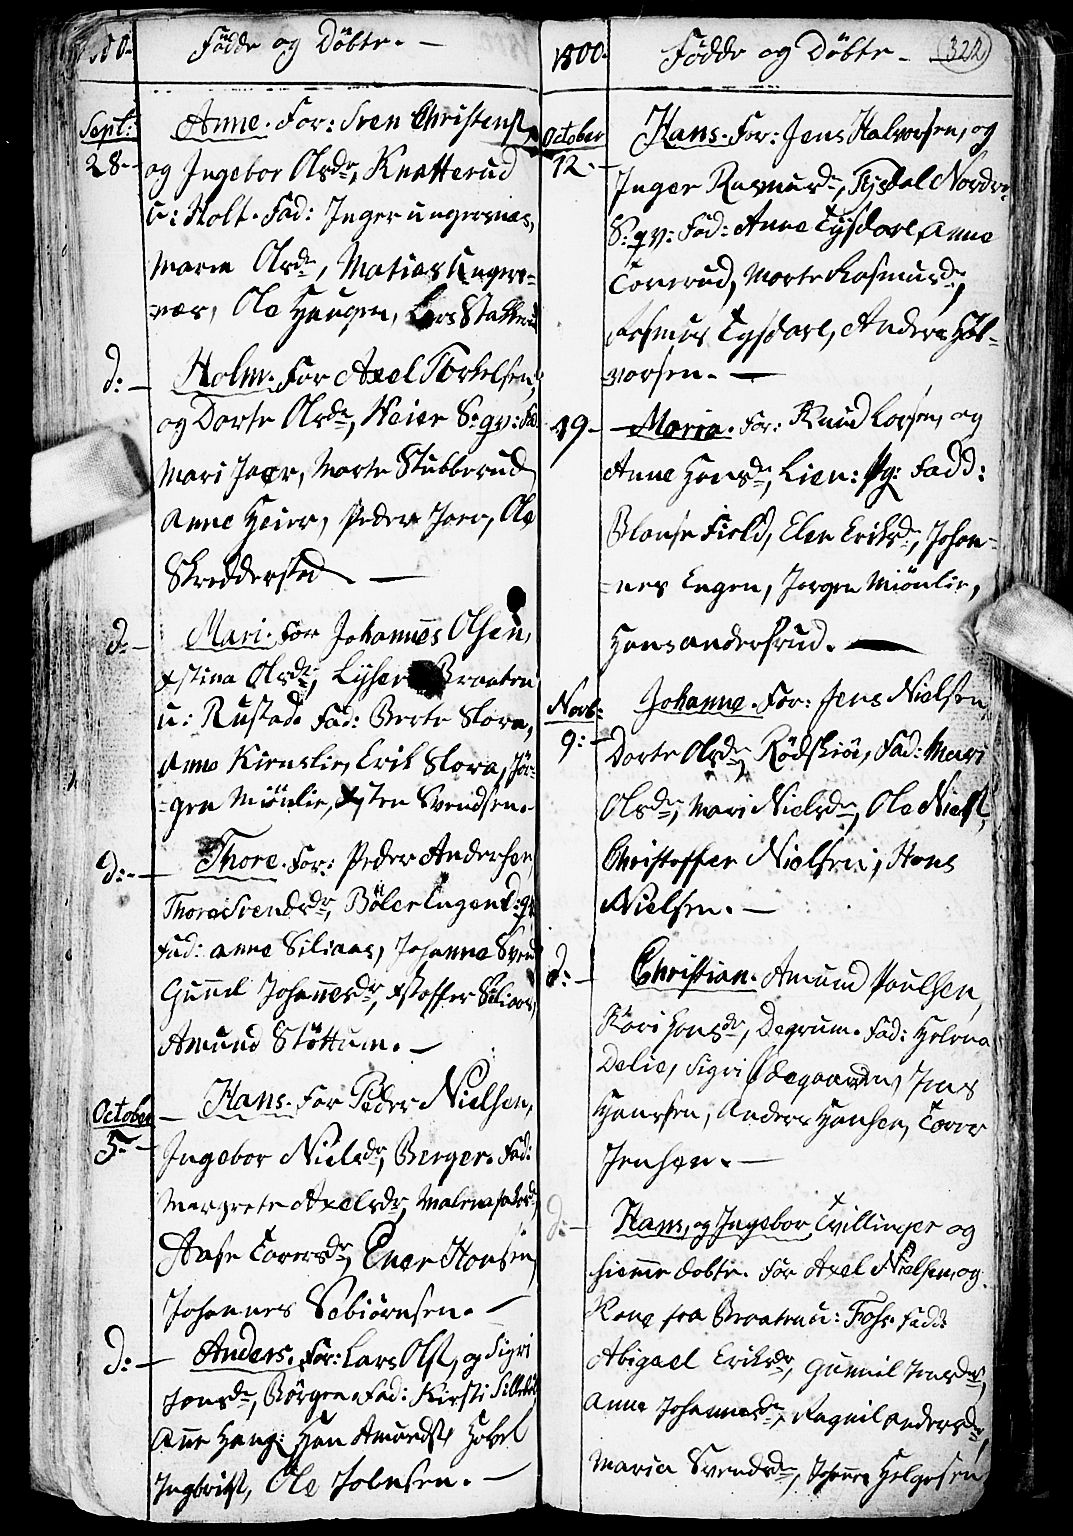 1800. Fødde og Døbte. —
Sept: Anne. For: Sven Christens.
28 - og Ingebor Olsdr, Knatterud
u: Holt. Fad: Inger ungersnæs,
Maren Olsdr, Matias Ungers-
-næs, Ole Haugen, Lars Stabberud
d: — Holm. For Axel Torkelsen,
og Dorte Olsdr, Heier S: gv: Fad:
Mari Joer, Marte Stubberud
Anne Heier, Peder Joer, Ole
Skredderstad —
d: — Mari. For Johannes Olsen,
Xstina Olsdr, Lyser Braaten
u: Rustad. Fad: Berte Slora,
Anne Kienslie, Erik Slora, Jør-
-gen Miönlie, Xsten Svendsen.
d: — Thore. For: Peder Andersen,
Thore Svendsdr, Böler Engen
Fad: Anne Siliaas, Johanne Svend
Gunnil Johannesdr, Xstoffer Siliaas,
Amund Støttum. —
October — Hans. For Peder Nielsen,
5 - Ingebor Nielsdr, Berger. Fad:
Margrete Axelsdr, Malene
Aase Torersdr, Ener Hansen,
Johannes Sebiörnsen. —
d: — Anders. For: Lars Ols., og Sigri
Jonsdr, Börgen. Fad: Kirsti
Ane Haug: Han Amunds. Hobel
Ingbrits., Ole Johnsen. —
1800. Fødde og Døbte - 322
October Hans. For: Jens Halvorsen, og
12. - Inger Rasmusdr, Tysdal Nordre
S: gv: Fad: Anne Tysdal, Anne
Torerud, Marte Rasmusdr,
Rasmus Tysdal, Anders Hal-
-vorsen. —
19 - Maria. For: Knud Larsen, og
Anne Hansdr, Lien: Pg: Fadd:
Blanse Field, Elen Eriksdr, Johan-
-nes Engen, Jørgen Miönlie,
Hans anderstrud. —
Novb: Johanne. For: Jens Nielsen
9: - Dorte Olsdr, Rödskiö, Fad: Mari
Olsdr, Mari Nielsdr, Ole Niels.,
Christoffer Nielsen, Hans
Nielsen. —
d: - Christian. Amund Poulsen,
Kari Hansdr, Degrum. Fad: Helena
Delie, Sigri Ödegaarden, Jens
Hanssen, Anders Hansen, Torer
Jensen. —
d: - Hans, og Ingebor Tvillinger og
hiemme döbte. For Axel Nielsen, og
Kone fra Braaten u: Foss. Fadd:
Abigael Eriksdr, Gunnil Jensdr,
Anne Johannesdr, Ragnil Andersdr,
Maria Svendsdr, Johannes Helgesen